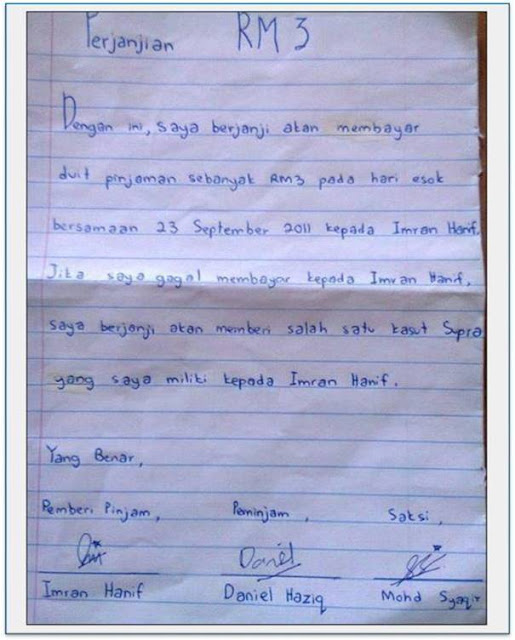 Perjanjian RM 3
Dengan ini, saya berjanji akan membayar
duit pinjaman sebanyak RM3 pada hari esok
bersamaan 23 September 2011 kepada Imran Hanif.
Jika saya gagal membayar kepada Imran Hanif,
saya berjanji akan memberi salah satu kasut Supra
yang saya miliki kepada Imran Hanif.
Yang Benar,
Pemberi Pinjam, Peminjam, Saksi,
Daniel
Imran Hanif Daniel Haziq Mohd Syaqir